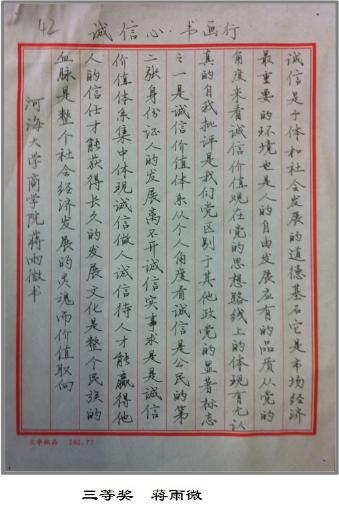 42
诚信心·书画行
诚信是个体和社会发展的道德基石它是市场经济
最重要的环境也是人的自由发展应有的品质从党的
角度来看诚信价值观在党的思想路线上的体现有无认
真的自我批评是我们党区别于其他政党的显著标志
之一是诚信价值体系从个人角度看诚信是公民的第
二张身份证人的发展离不开诚信实事求是是诚信
价值体系集中体现诚信做人诚信待人才能赢得他
人的信任才能获得长久的发展文化是整个民族的
血脉是整个社会经济发展的灵魂而价值取向
河海大学商学院蒋雨微书
三等奖 蒋雨微